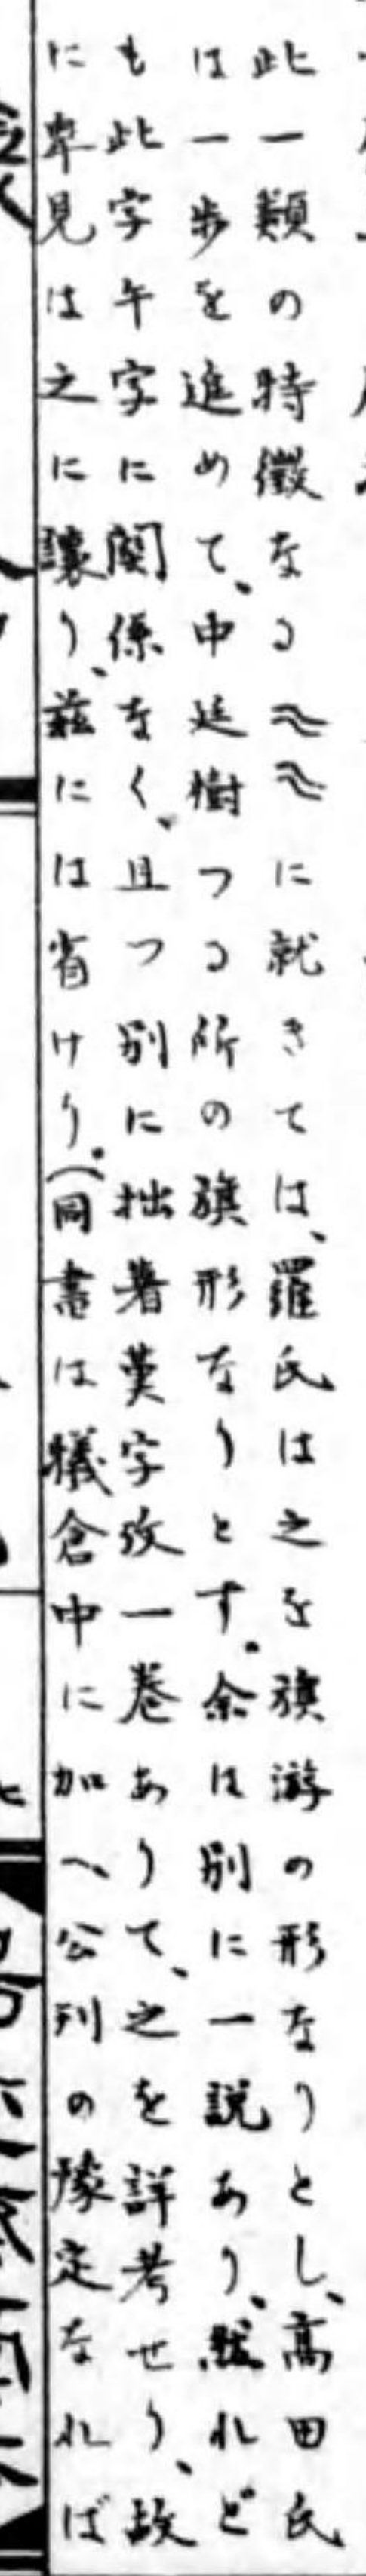 此一類の特徴なる⺀に就きては、羅氏は之を旗游の形なりとし、高田氏
は一歩を進めて、中廷樹つる所の旗形なりとす。余は別に一説あり、然れど
も此字午字に関係なく、且つ別に拙著英字攷一巻ありて、之を詳考せり、故
に卑見は之に譲り、茲には省けり。(同書は犠倉中に加へ公列の豫定なれば